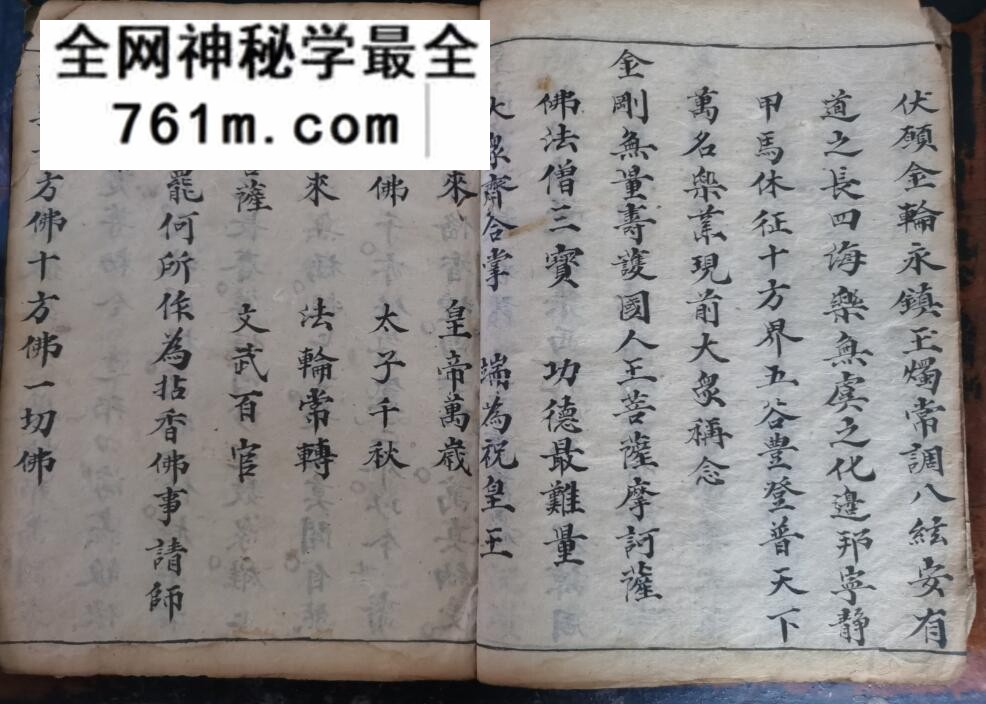 全网神秘学最全
761m.com
伏願金輪永鎮玉燭常調八絃安有
道之長四海樂無虞之化邊邦寧静
甲馬休征十方界五谷豊登普天下
萬名樂業現前大衆稱念
金剛無量壽護國人王菩薩摩訶薩
佛法僧三寶 功德最難量
大衆齊合掌 端為祝皇王
來 皇帝萬歲
佛 太子千秋
來 法輪常轉
薩 文武百官
罷何所作為拈香佛事請師
方佛十方佛一切佛